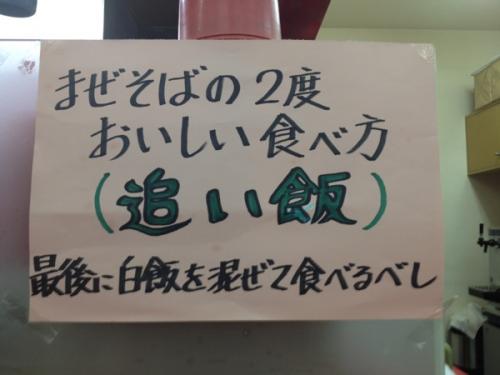 まぜそばの2度
おいしい食べ方
(追い飯)
最後に白飯を混ぜて食べるべし